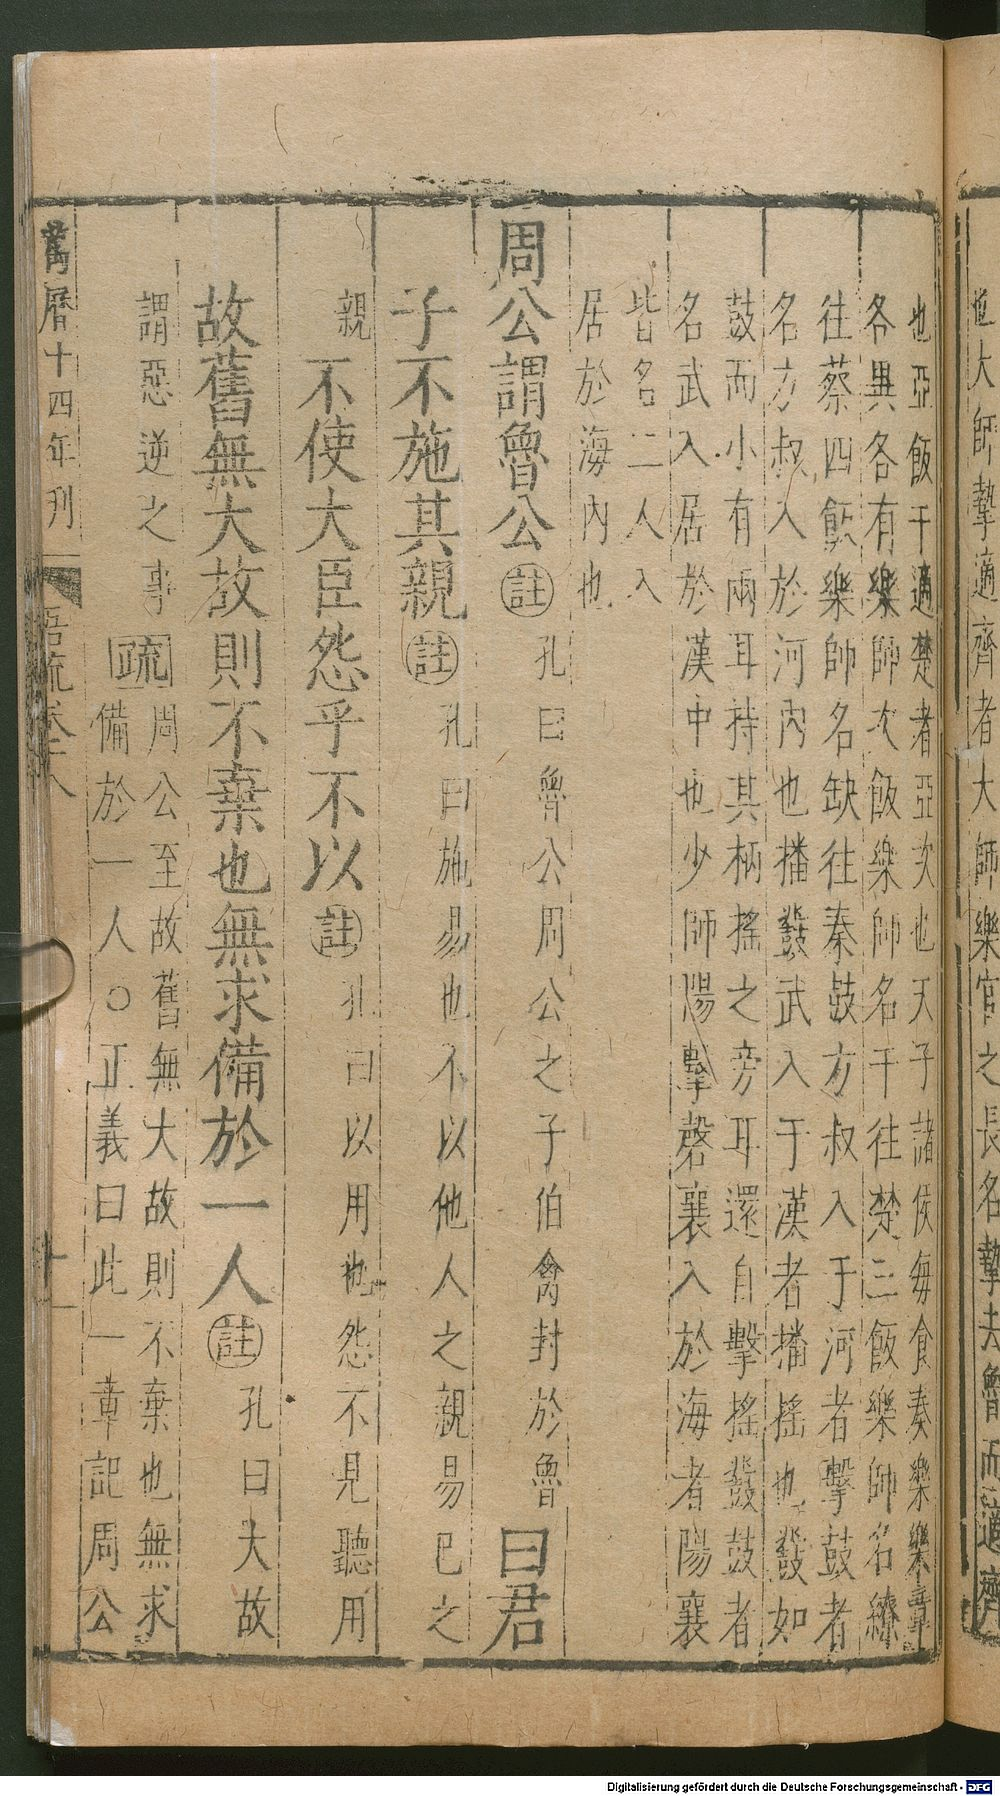 也大師摯適齊者大師樂官之長名摯去魯而適齊
也亞飯干適楚者亞次也天子諸侯每食奏樂樂章
各異各有樂師次飯樂師名干往楚三飯樂師名繚
往蔡四飯樂師名缺往秦鼓方叔入于河者擊鼓者
名方叔入於河內也播鼗武入于漢者播搖也鼗如
鼓而小有兩耳持其柄搖之旁耳還自擊搖鼗鼓者
名武入居於漢中也少師陽擊磬襄入於海者陽襄
皆名二人入
居於海內也
周公謂魯公註孔曰魯公周公之子伯禽封於魯曰君
子不施其親註孔曰施易也不以他人之親易己之
親不使大臣怨乎不以註孔曰以用也怨不見聽用
故舊無大故則不棄也無求備於一人註孔曰大故
謂惡逆之事疏周公至故舊無大故則不棄也無求
備於一人○正義曰此一章記周公
萬曆十四年刊
語疏卷十八
十一
Digitalisierung gefördert durch die Deutsche Forschungsgemeinschaft - DFG